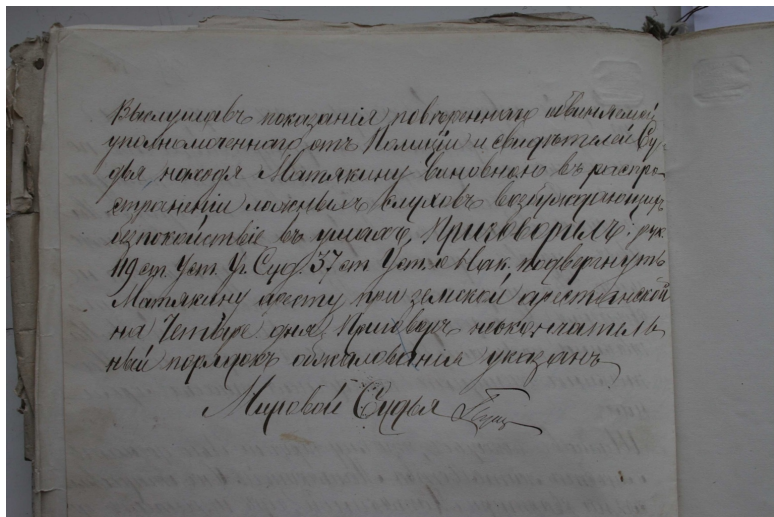 Выслушавъ показанія повѣреннаго обвиняемой
уполномоченнаго отъ Полиціи и свидѣтелей Су-
дья, находя Матякину виновною въ распро-
страненіи ложныхъ слуховъ возбуждающихъ
безпокойствіе въ умахъ, Приговорилъ: рук.
119 ст. Уст. Уг. Суд. 37 ст. Уст. о Нак. подвергнуть
Матякину аресту при земской арестантской
на Четыре дня, Приговоръ неокончатель-
ный порядокъ обжалованія указанъ
Мировой Судья